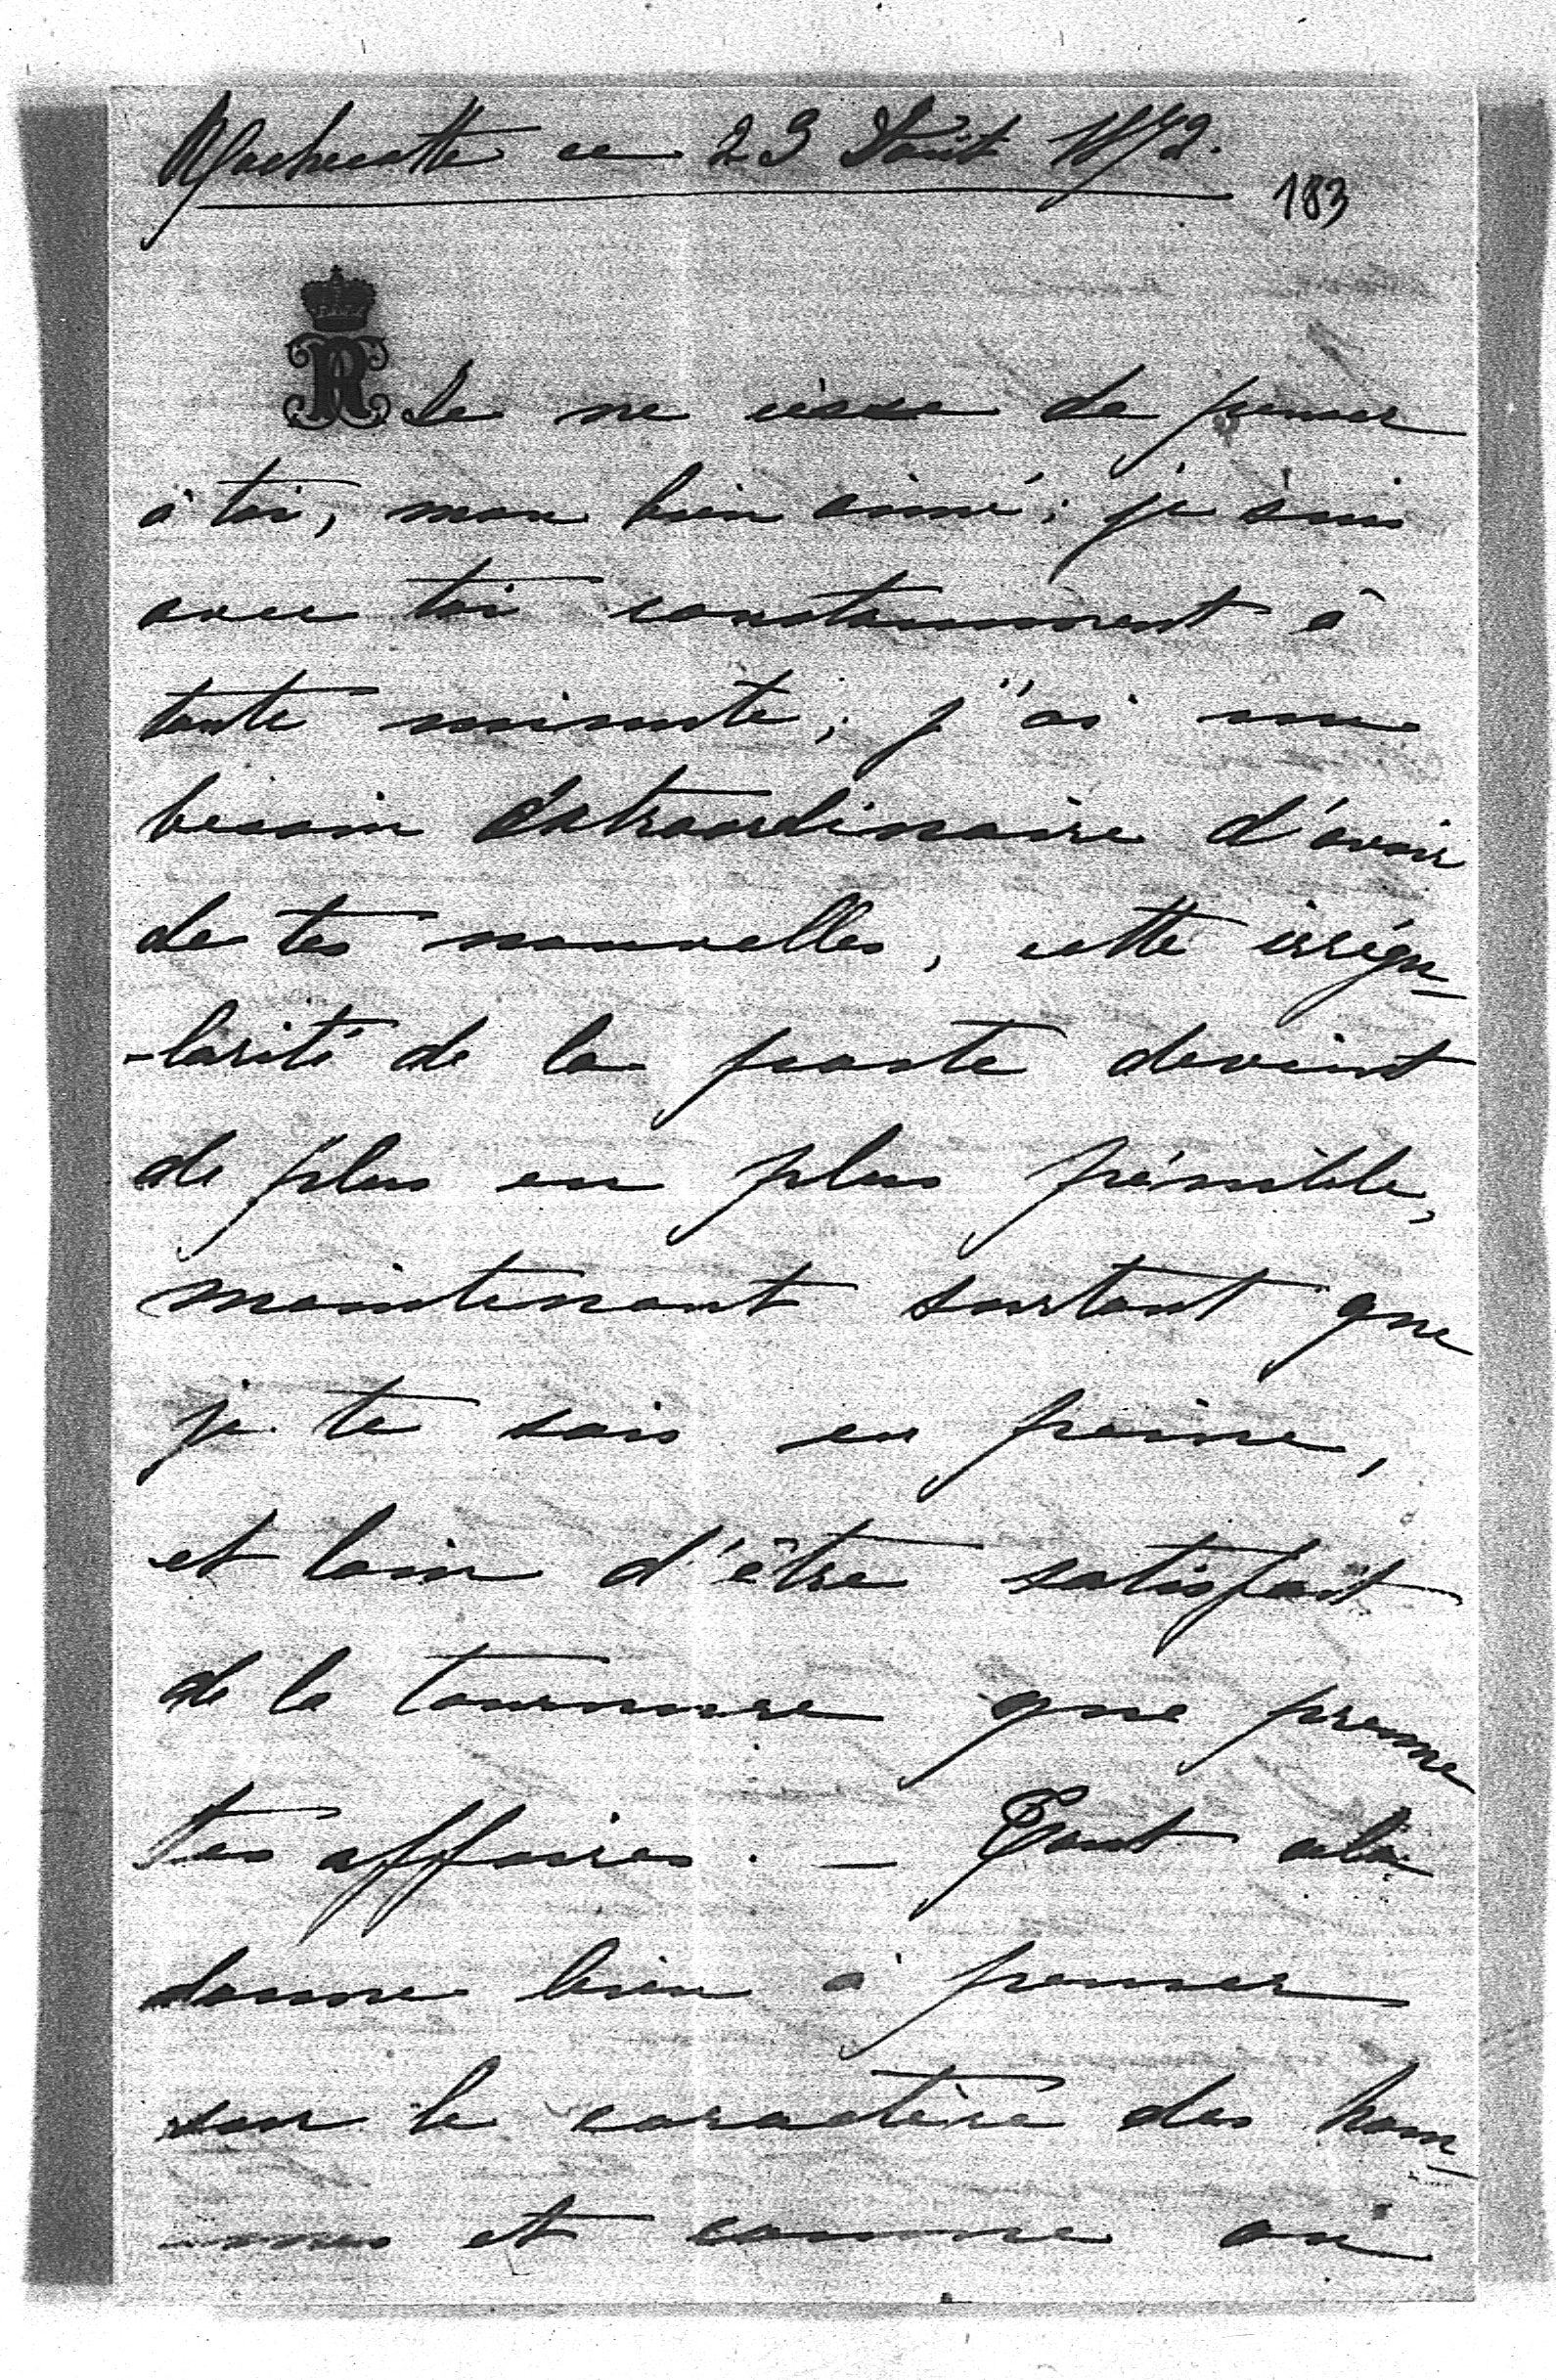 ce 23 Août 1872.
183
R
Je ne cesse de penser
à toi, mon bien aimé; je suis
avec toi constamment à
toute minute; j'ai un
besoin extraordinaire d'avoir
de tes nouvelles, cette irrégu-
-larité de la poste devient
de plus en plus pénible,
maintenant surtout que
je te sais en peine,
et loin d'être satisfait
de la tournure que prenne
tes affaires. — Tout cela
donne bien à penser
sur le caractère des hom-
-mes et comme on